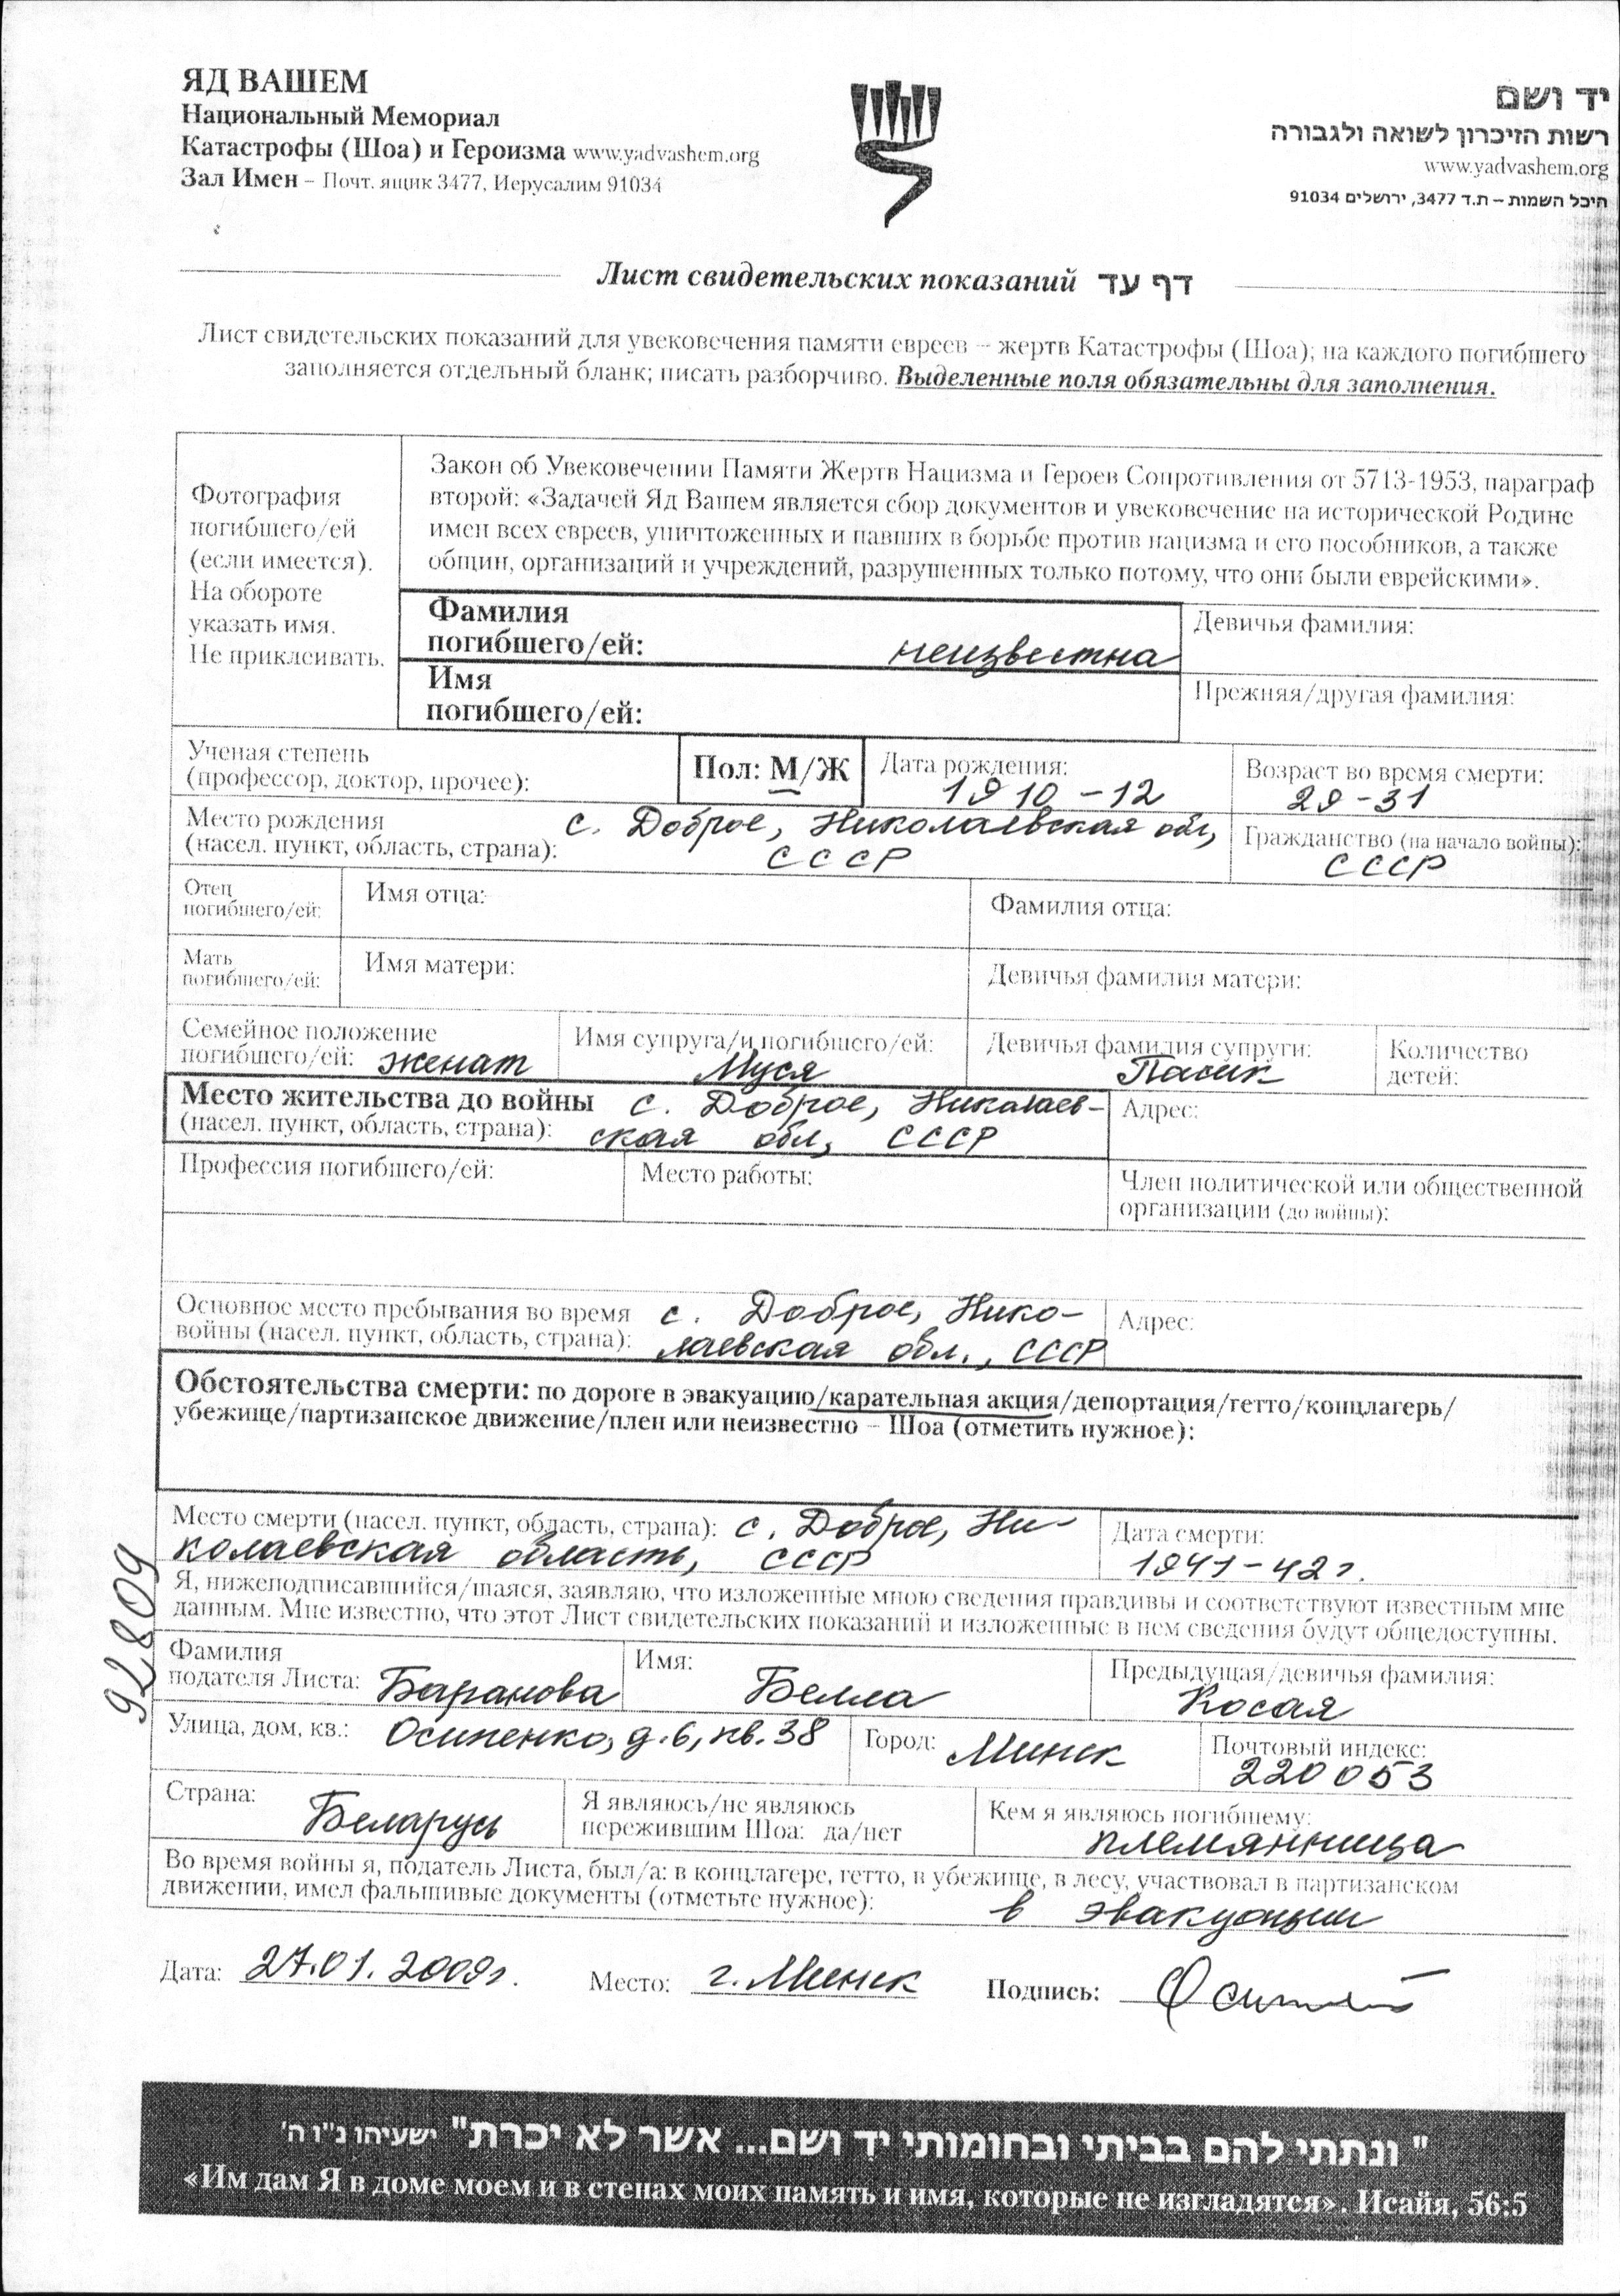 ЯД ВАШЕМ
Национальный Мемориал
Катастрофы (Шоа) и Героизма www.yadvashem.org
Зал Имен – Почт. ящик 3477, Иерусалим 91034
יד ושם
רשות הזיכרון לשואה ולגבורה
www.yadvashem.org
היכל השמות – ת.ד 3477, ירושלים 91034
Лист свидетельских показаний דף עד
Лист свидетельских показаний для увековечения памяти евреев – жертв Катастрофы (Шоа); на каждого погибшего
заполняется отдельный бланк; писать разборчиво. Выделенные поля обязательны для заполнения.
Фотография
погибшего/ей
(если имеется).
На обороте
указать имя.
Не приклеивать.
Закон об Увековечении Памяти Жертв Нацизма и Героев Сопротивления от 5713-1953, параграф
второй: «Задачей Яд Вашем является сбор документов и увековечение на исторической Родине
имен всех евреев, уничтоженных и павших в борьбе против нацизма и его пособников, а также
общин, организаций и учреждений, разрушенных только потому, что они были еврейскими».
Фамилия
погибшего/ей: неизвестна
Девичья фамилия:
Имя
погибшего/ей:
Прежняя/другая фамилия:
Ученая степень
(профессор, доктор, прочее):
Пол: М/Ж
Дата рождения:
1910-12
Возраст во время смерти:
29-31
Место рождения
(насел. пункт, область, страна):
с. Доброе, Николаевская обл,
СССР
Гражданство (на начало войны):
СССР
Отец
погибшего/ей:
Имя отца:
Фамилия отца:
Мать
погибшего/ей:
Имя матери:
Девичья фамилия матери:
Семейное положение
погибшего/ей: женат
Имя супруга/и погибшего/ей:
Муся
Девичья фамилия супруги:
Пасик
Количество
детей:
Место жительства до войны с. Доброе, Николаев-
(насел. пункт, область, страна): ская обл, СССР
Адрес:
Профессия погибшего/ей:
Место работы:
Член политической или общественной
организации (до войны):
Основное место пребывания во время с. Доброе, Нико-
войны (насел. пункт, область, страна): лаевская обл., СССР
Адрес:
Обстоятельства смерти: по дороге в эвакуацию/карательная акция/депортация/гетто/концлагерь/
убежище/партизанское движение/плен или неизвестно – Шоа (отметить нужное):
Место смерти (насел. пункт, область, страна): с. Доброе, Ни-
колаевская область, СССР
Дата смерти:
1941-42г.
Я, нижеподписавшийся/шаяся, заявляю, что изложенные мною сведения правдивы и соответствуют известным мне
данным. Мне известно, что этот Лист свидетельских показаний и изложенные в нем сведения будут общедоступны.
92809
Фамилия
подателя Листа: Баранова
Имя:
Белла
Предыдущая/девичья фамилия:
Косая
Улица, дом, кв.: Осипенко, д.6, кв.38
Город: Минск
Почтовый индекс:
220053
Страна:
Беларусь
Я являюсь/не являюсь
пережившим Шоа: да/нет
Кем я являюсь погибшему:
племянница
Во время войны я, податель Листа, был/а: в концлагере, гетто, в убежище, в лесу, участвовал в партизанском
движении, имел фальшивые документы (отметьте нужное): в эвакуации
Дата: 27.01.2009г. Место: г. Минск Подпись:
" ונתתי להם בביתי ובחומותי יד ושם... אשר לא יכרת" ישעיהו נ"ו ה'
«Им дам Я в доме моем и в стенах моих память и имя, которые не изгладятся». Исайя, 56:5